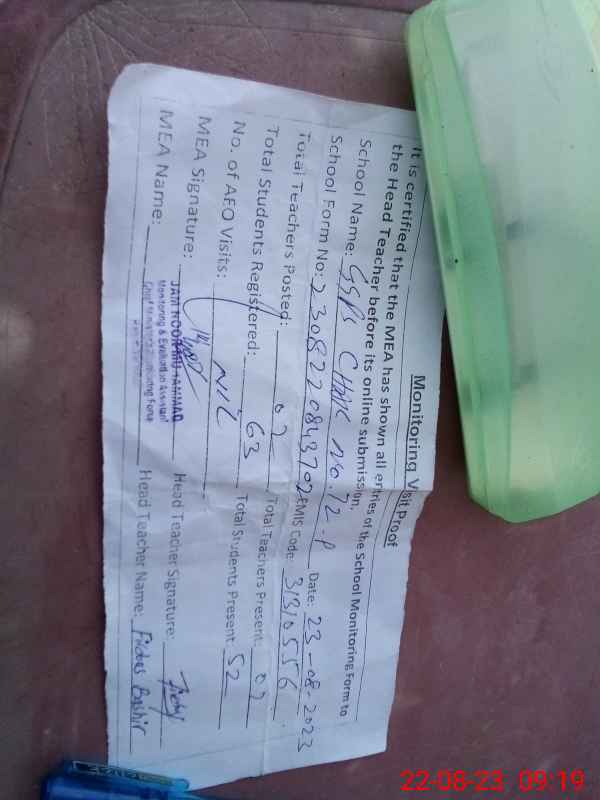 Monitoring Visit Proof
It is certified that the MEA has shown all entries of the School Monitoring Form to
the Head Teacher before its online submission.
School Name: GGPS CHAK No. 72-P Date: 23-08-2023
School Form No: 230822084370 EMIS Code: 31310556
Total Teachers Posted: 02 Total Teachers Present: 02
Total Students Registered: 63 Total Students Present: 52
No. of AEO Visits: NIL
MEA Signature: Head Teacher Signature:
MEA Name: JAM NOOR MUHAMMAD Head Teacher Name: Firdos Bashir
Monitoring & Evaluation Assistant
Chief Minister's Monitoring Force
22-08-23 09:19